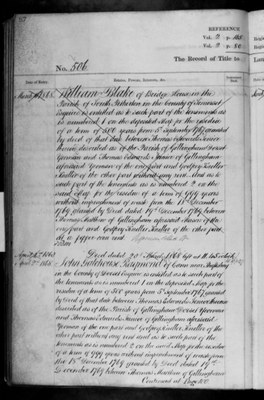 87
REFERENCE
Vol. 2 p.
Vol. 2 p. 80
No. 506
The Record of Title to
Date of Entry.
William Blake of Bridge House in the
Parish of South Petherton in the County of Somerset
Esquire is entitled as to such part of the tenements as
is numbered 1 on the deposited Map for the residue
of a term of 500 years from 5th September 1767 granted
by deed of that date between Thomas Edwards Senior
therein described as of the Parish of Gillingham Dorset
Yeoman and Thomas Edwards Junior of Gillingham
aforesaid Yeoman of the one part and Godfrey Kneller
Kneller of the other part without any rent. And as to such
part of the tenements as is numbered 2 on the
said Map for the residue of a term of 999 years
without impeachment of waste from the 18th December
1769 granted by Deed dated 19th December 1769 between
Thomas Matthew of Gillingham aforesaid of the
one part and Godfrey Kneller Kneller of the other part
at a pepper corn rent
Deed dated 20th March 1866
John Gatehouse Raymond of
in the County of Dorset Esquire is entitled as to such part of
the tenements as is numbered 1 on the deposited Map for the
residue of a term of 500 years from 5th September 1767 granted
by Deed of that date between Thomas Edwards Senior therein
described as of the Parish of Gillingham Dorset Yeoman
and Thomas Edwards Junior of Gillingham aforesaid
Yeoman of the one part and Godfrey Kneller Kneller of the
other part without any rent and as to such part of the
tenements as is numbered 2 on the said Map for the residue
of a term of 999 years without impeachment of waste from
the 18th December 1769 granted by Deed dated 19th
December 1769 between Thomas Matthew of Gillingham
Continued at Page